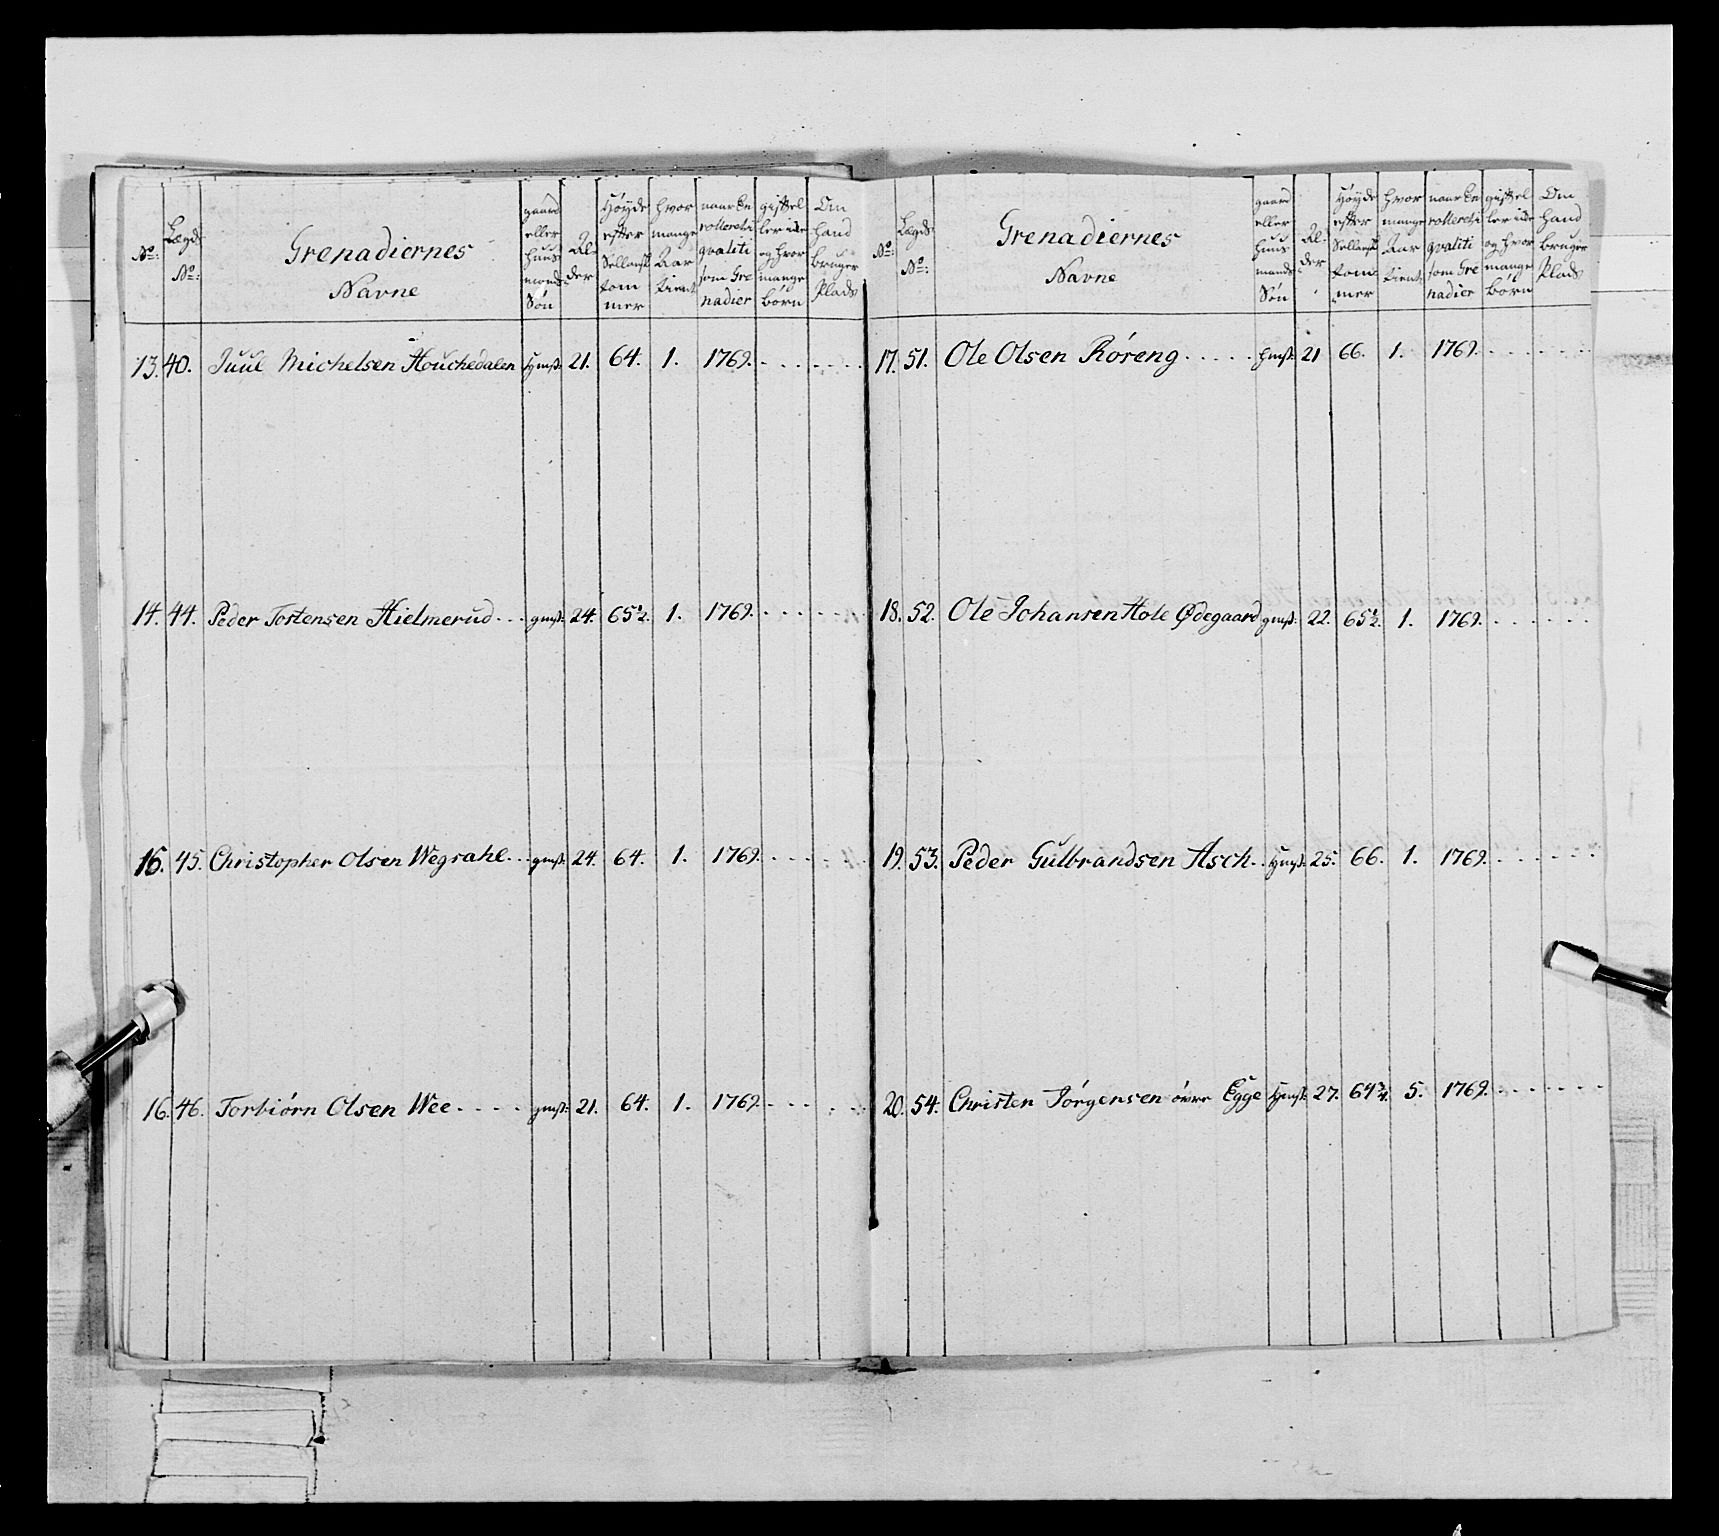 No: Lægds No: Grenadiernes Navne gaard eller huus mands Søn Al- der Høyde efter Sellansk tom mer hvor mange Aar tient naar En rolleret i qvaliti som Gre nadier gift el ler ide og hvor mange børn Om hand bruger Plads
13. 40. Juul Michelsen Houchedalen hmß. 21. 64. 1. 1769.
14. 44. Peder Tostensen Hielmerud gmß. 24. 65½. 1. 1769.
16. 45. Christopher Olsen Wegsahl gmß. 24. 64. 1. 1769.
16. 46. Torbiørn Olsen Wee gmß. 21. 64. 1. 1769.
No: Lægds No: Grenadiernes Navne gaard eller huus mands Søn Al- der Høyde efter Sellansk tom- mer hvor mange Aar tient naar En rolleret i qvaliti som Gre nadier gift el ler ide og hvor mange børn Om hand bruger Plads
17. 51. Ole Olsen Røreng hmß. 21 66. 1. 1769.
18. 52. Ole Johansen Hole Ødegaard gmß. 22. 65½. 1. 1769.
19. 53. Peder Gulbrandsen Asch hmß. 25. 66. 1. 1769.
20. 54. Christen Jørgensen øvre Egge hmß. 27. 64¾. 5. 1769.